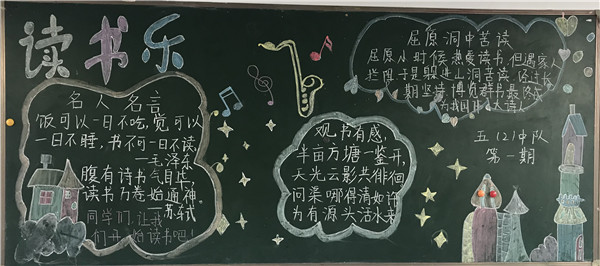 读书乐
名人名言
饭可以一日不吃,觉可以
一日不睡,书不可一日不读,
—毛泽东
腹有诗书气自华,
读书万卷始通神
苏轼
同学们,让我
们开始读书吧!
观书有感,
半亩方塘一鉴开,
天光云影共徘徊
问渠哪得清如许
为有源头活水来
屈原洞中苦读
屈原小时候热爱读书,但遇家人
拦阻于是躲进山洞苦读,经过长
期坚持博览群书最终成
为我国伟大诗人
五(2)中队
第一期